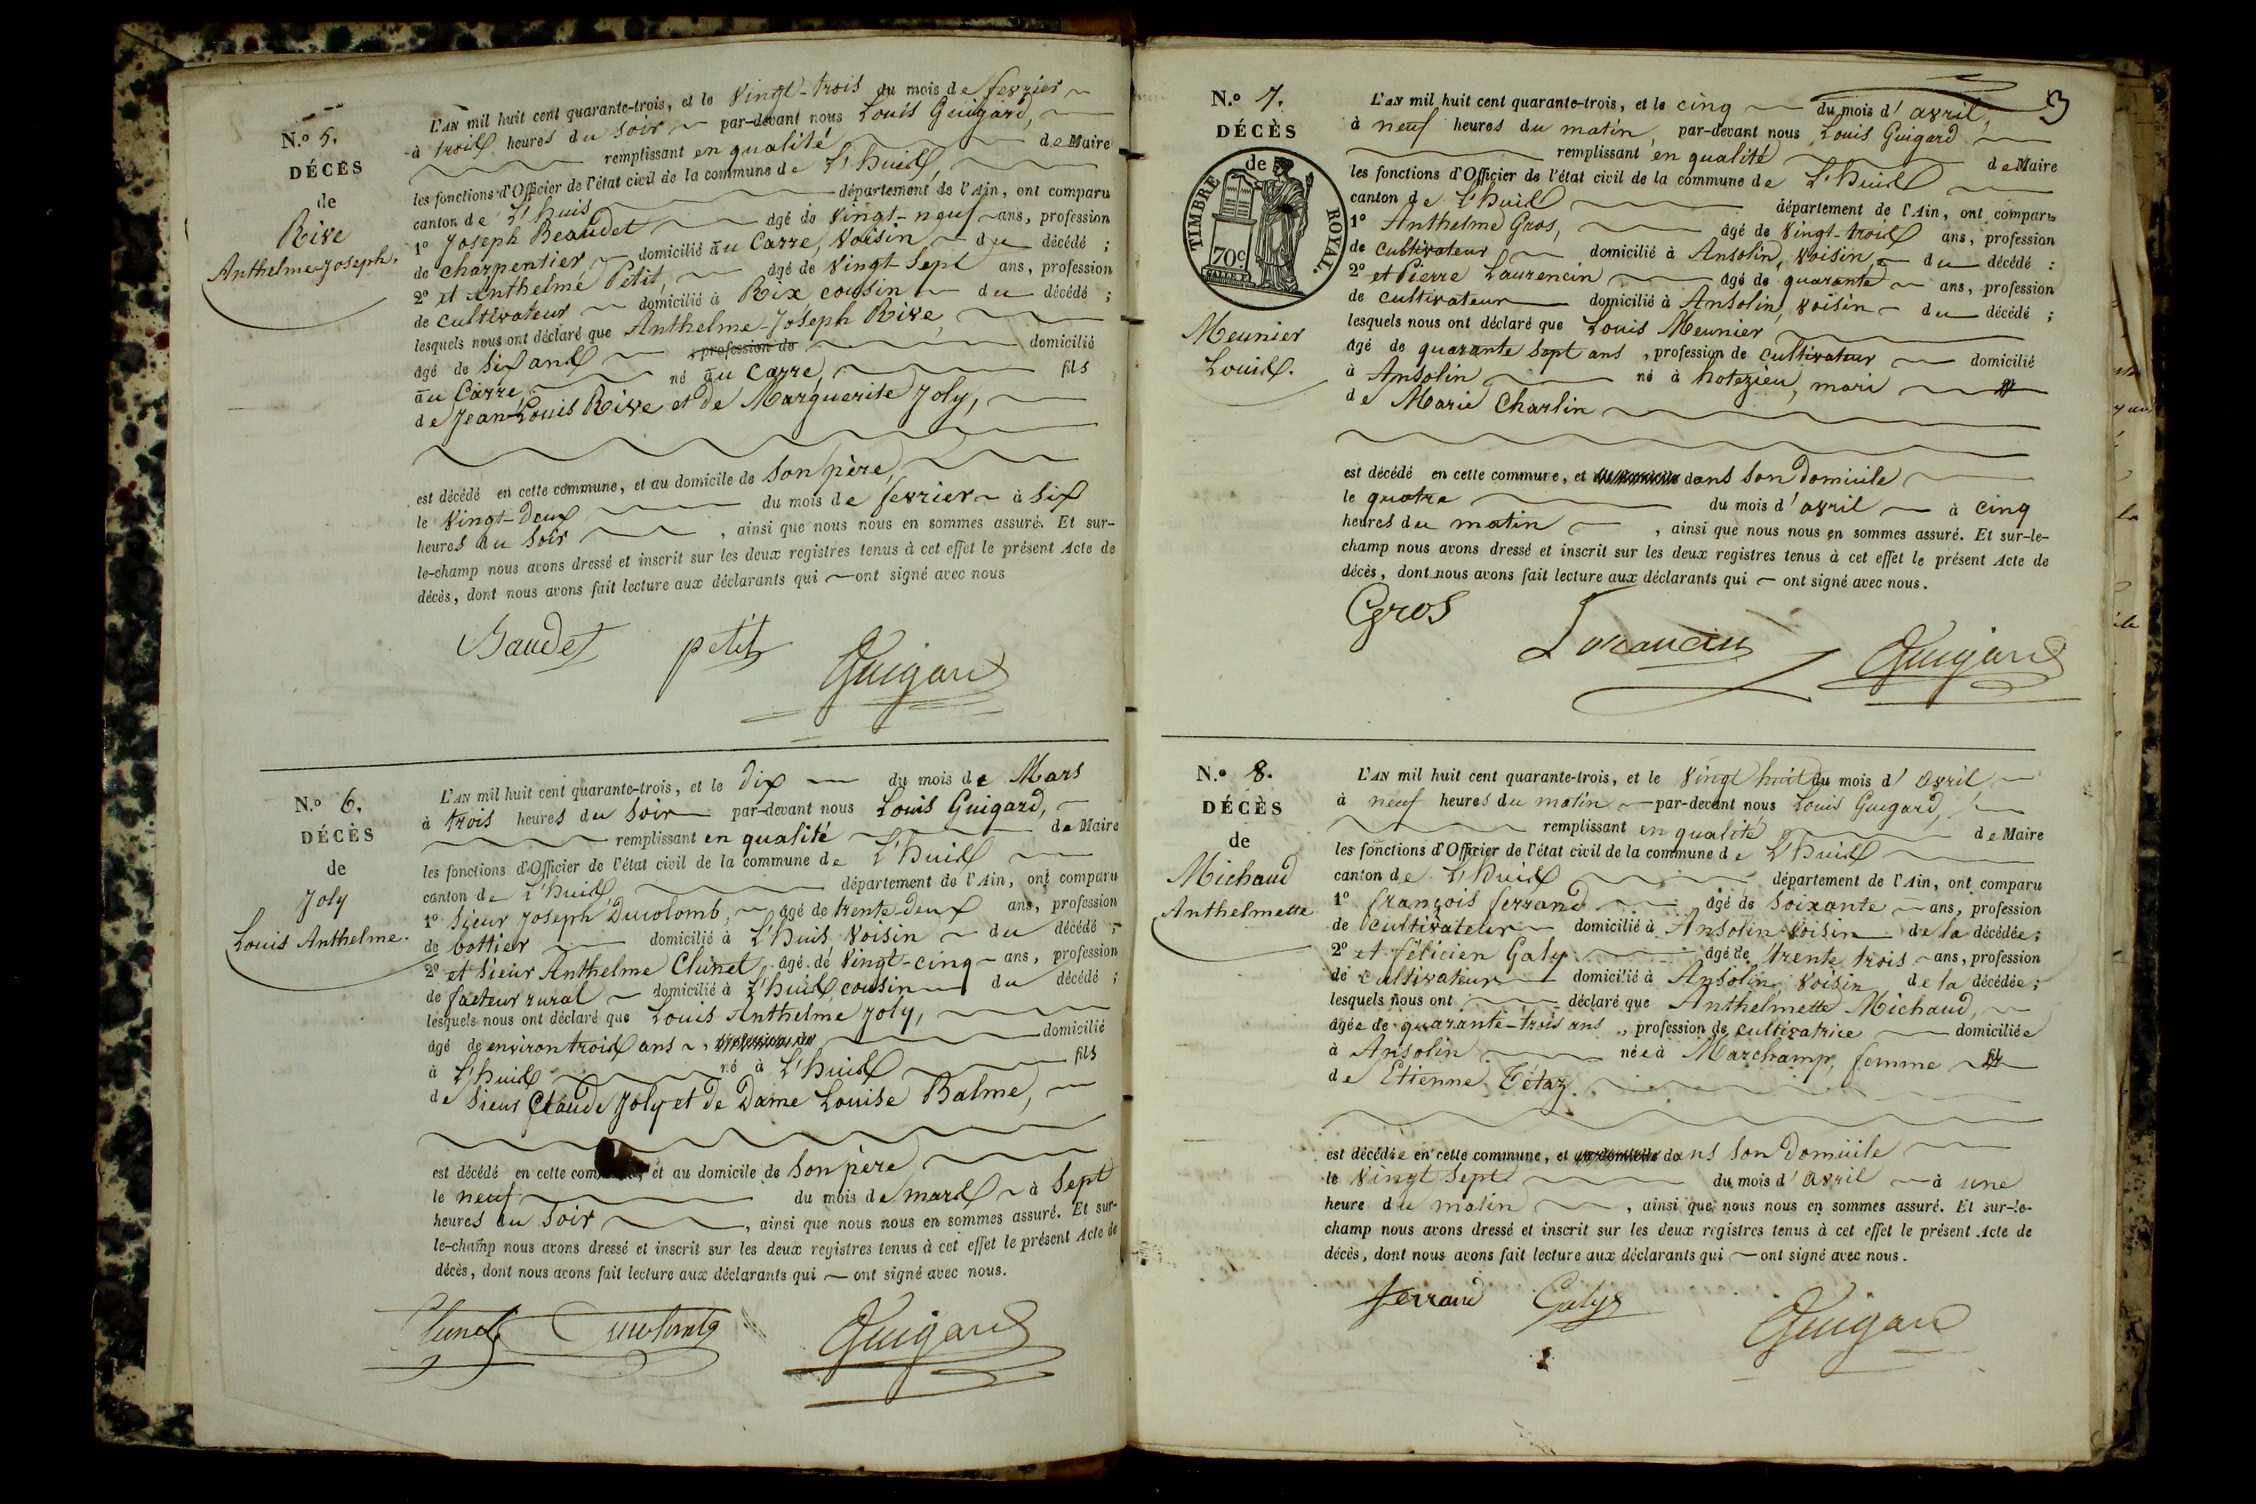 N.o 5.
DÉCÈS
de
Rive
Anthelme-Joseph.
L'AN mil huit cent quarante-trois, et le Vingt-trois du mois de fevrier
à trois heures du soir par-devant nous Louis Guigard,
remplissant en qualité de Maire
les fonctions d'Officier de l'état civil de la commune de L'huis,
canton de L'huis département de l'Ain, ont comparu
1o Joseph Beaudet âgé de Vingt-neuf ans, profession
de charpentier, domicilié au Carre, Voisin du décédé ;
2o et Anthelme Petit, âgé de Vingt-Sept ans, profession
de cultivateur domicilié à Rix, cousin du décédé ;
lesquels nous ont déclaré que Anthelme-Joseph Rive,
âgé de Six ans , profession de domicilié
au Carre, né au Carre, fils
de Jean-Louis Rive et de Marguerite Joly,
est décédé en cette commune, et au domicile de Son père,
le Vingt-Deux du mois de fevrier à Six
heures du Soir , ainsi que nous nous en sommes assuré. Et sur-
le-champ nous avons dressé et inscrit sur les deux registres tenus à cet effet le présent Acte de
décès, dont nous avons fait lecture aux déclarants qui ont signé avec nous
Baudet petit Guigard
N.o 6.
DÉCÈS
de
Joly
Louis Anthelme.
L'AN mil huit cent quarante-trois, et le Dix du mois de Mars
à trois heures du Soir par-devant nous Louis Guigard,
remplissant en qualité de Maire
les fonctions d'Officier de l'état civil de la commune de L'huis
canton de L'huis, département de l'Ain, ont comparu
1o Sieur Joseph Ducolomb, âgé de trente-deux ans, profession
de bottier domicilié à L'huis, Voisin du décédé ;
2o et Sieur Anthelme Clunet, âgé de Vingt-cinq ans, profession
de facteur rural domicilié à L'huis, cousin du décédé ;
lesquels nous ont déclaré que Louis Anthelme Joly,
âgé de environ trois ans , profession de domicilié
à L'huis né à L'huis fils
de Sieur Claude Joly et de Dame Louise Balme,
est décédé en cette commune, et au domicile de Son père,
le neuf du mois de mars à Sept
heures du Soir , ainsi que nous nous en sommes assuré. Et sur-
le-champ nous avons dressé et inscrit sur les deux registres tenus à cet effet le présent Acte de
décès, dont nous avons fait lecture aux déclarants qui ont signé avec nous.
Clunet Ducolomb Guigard
3
N.o 7.
DÉCÈS
de
TIMBRE ROYAL.
70c
Meunier
Louis.
L'AN mil huit cent quarante-trois, et le cinq du mois d'avril,
à neuf heures du matin, par-devant nous Louis Guigard
remplissant en qualité de Maire
les fonctions d'Officier de l'état civil de la commune de L'huis
canton de L'huis département de l'Ain, ont comparu
1o Anthelme Gros, âgé de Vingt-trois ans, profession
de cultivateur domicilié à Ansolin, Voisin du décédé :
2o et Pierre Laurencin âgé de quarante ans, profession
de cultivateur domicilié à Ansolin, Voisin du décédé ;
lesquels nous ont déclaré que Louis Meunier
âgé de quarante Sept ans , profession de cultivateur domicilié
à Ansolin né à hotezieu, mari
de Marie Charlin
est décédé en cette commune, et dans Son Domicile
le quatre du mois d'avril à cinq
heures du matin , ainsi que nous nous en sommes assuré. Et sur-le-
champ nous avons dressé et inscrit sur les deux registres tenus à cet effet le présent Acte de
décès, dont nous avons fait lecture aux déclarants qui ont signé avec nous.
Gros Lorancin Guigard
N.o 8.
DÉCÈS
de
Michaud
Anthelmette
L'AN mil huit cent quarante-trois, et le Vingt huit du mois d'avril
à neuf heures du matin par-devant nous Louis Guigard,
remplissant en qualité de Maire
les fonctions d'Officier de l'état civil de la commune de L'huis
canton de L'huis département de l'Ain, ont comparu
1o françois ferrand âgé de Soixante ans, profession
de cultivateur domicilié à Ansolin Voisin de la décédée ;
2o et félicien Galy âgé de trente trois ans, profession
de cultivateur domicilié à Ansolin, Voisin de la décédée ;
lesquels nous ont déclaré que Anthelmette Michaud,
âgée de quarante-trois ans , profession de cultivatrice domiciliée
à Ansolin née à Marchamp, femme
de Etienne Tétaz.
est décédée en cette commune, et au domicile dans Son Domicile
le Vingt Sept du mois d'avril à une
heure du matin , ainsi que nous nous en sommes assuré. Et sur-le-
champ nous avons dressé et inscrit sur les deux registres tenus à cet effet le présent Acte de
décès, dont nous avons fait lecture aux déclarants qui ont signé avec nous.
ferrand Galy Guigard